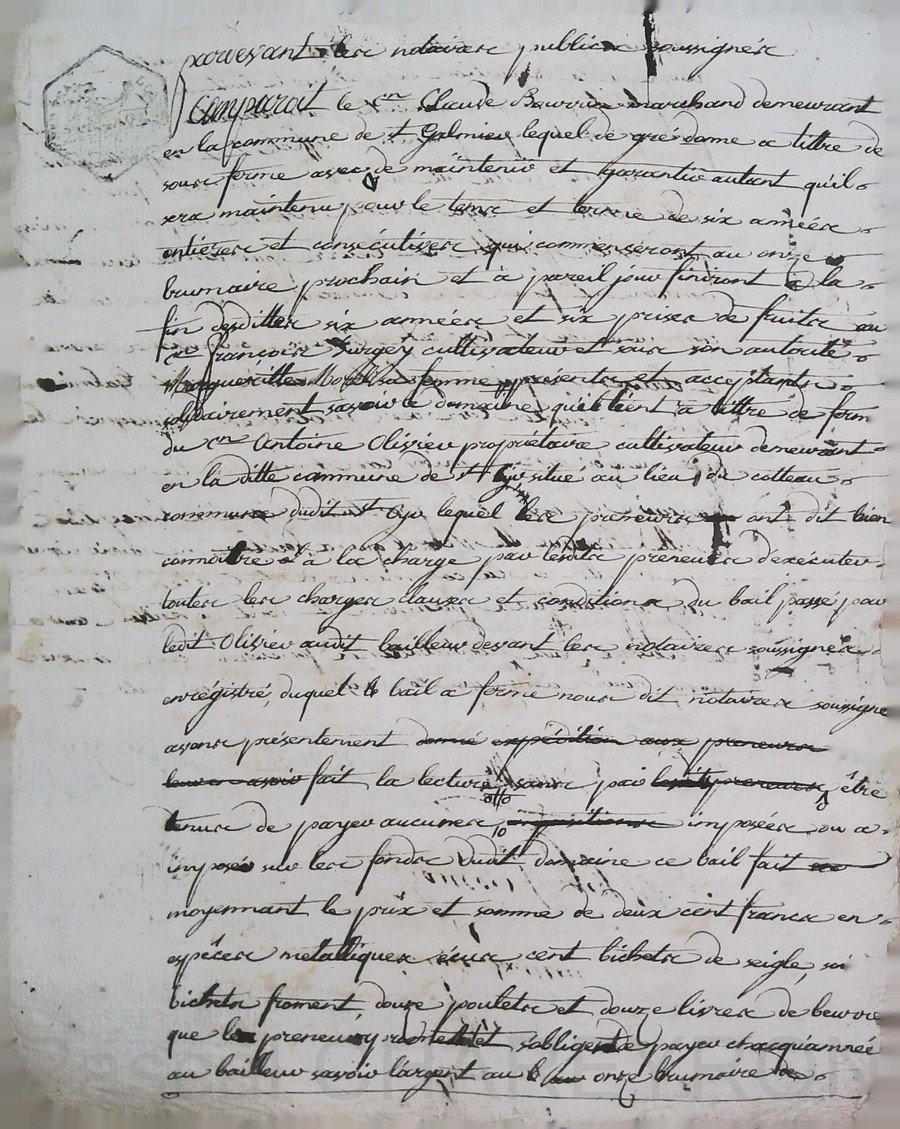 pardevant les notaires publics soussignés
Comparoit le cn Claude marchand demeurant
en la commune de st Galmier lequel de gré done a tittre de
sous ferme avec de maintenir et garantir autant quil
sera maintenu pour le tems et terme de six années
entières et consécutives qui commenseront au onze
brumaire prochain et à pareil jour finiront a la
fin desdittes six années et six prises de fruits au
cn francois cultivateur et sous son autorité
Margueritte sa femme présents et acceptants
solidairement savoir le domaine quil tient a tittre de ferm
du cn Antoine Olivier propriétaire cultivateur demeurant
en la ditte commune de st Cyr situé au lieu du cotteau
commune dudit st Cyr lequel les preneurs ont dit bien
connoitre à la charge par lesdits preneurs d'exécuter
toutes les charges clauses et conditions du bail passé par
ledit Olivier audit bailleur devant les notaires soussignés
enrégistré, duquel bail a ferme nous dit notaires soussigne
avons présentement donné expédition aux preneurs
leur avoir fait la lecture sans par lesdits preneurs être
tenus de payer aucunes impositions imposées ou a
imposer sur les fonds dudit domaine ce bail fait
moyennant le prix et somme de deux cent francs en
espéces métalliques cent bichets de seigle, six
bichets froment, douze poulets et douze livres de beurre
que les preneurs et sobligent de payer chacquannée
au bailleur savoir l'argent au onze brumaire de